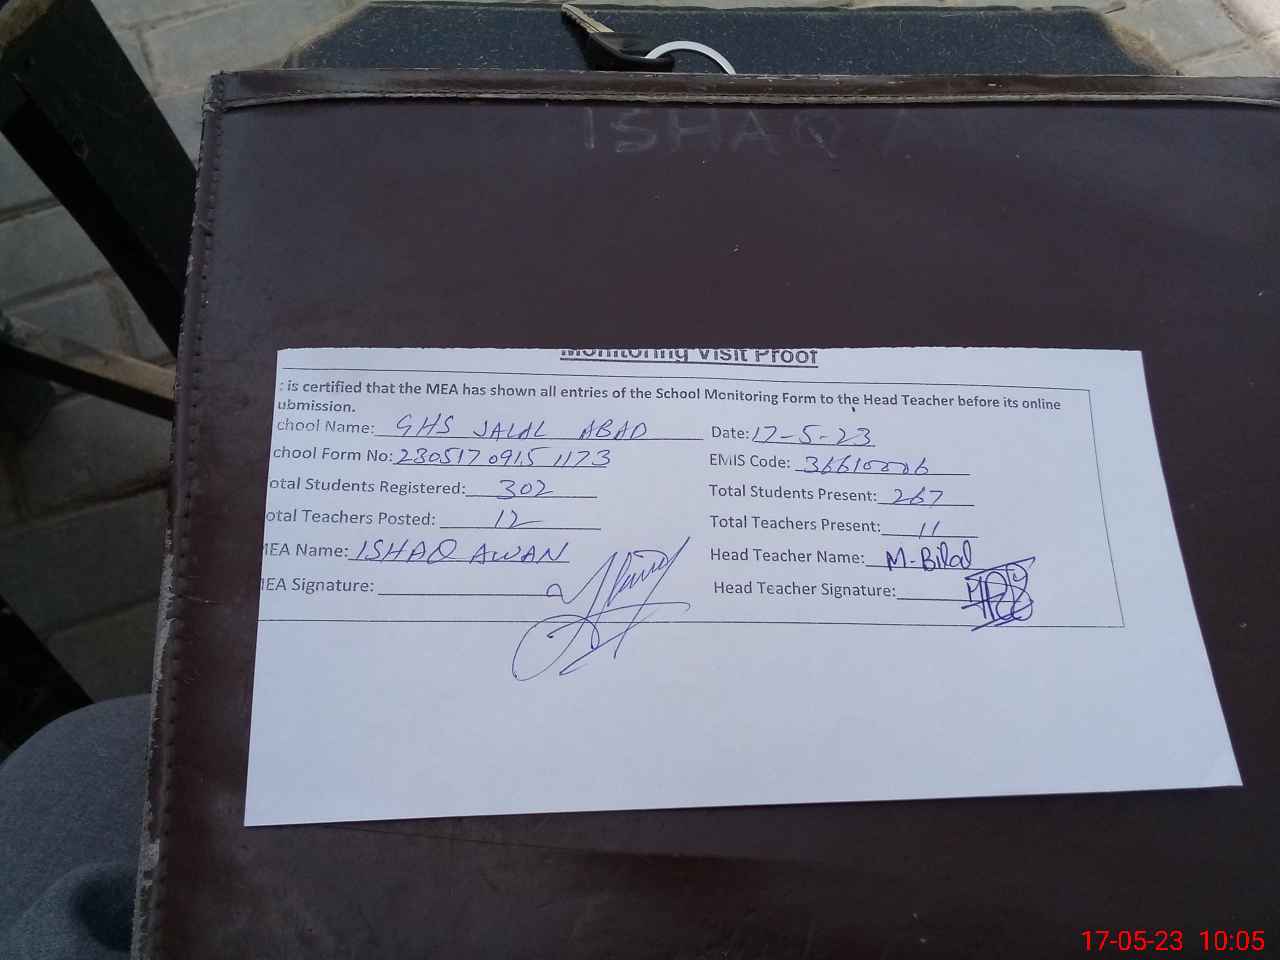 ISHAQ A
Monitoring Visit Proof
is certified that the MEA has shown all entries of the School Monitoring Form to the Head Teacher before its online
ubmission.
chool Name: GHS JALAL ABAD Date: 17-5-23
chool Form No: 230517 0915 1173 EMIS Code: 36610006
otal Students Registered: 302 Total Students Present: 267
otal Teachers Posted: 12 Total Teachers Present: 11
MEA Name: ISHAQ AWAN Head Teacher Name: M-Bilal
MEA Signature: Head Teacher Signature:
17-05-23 10:05